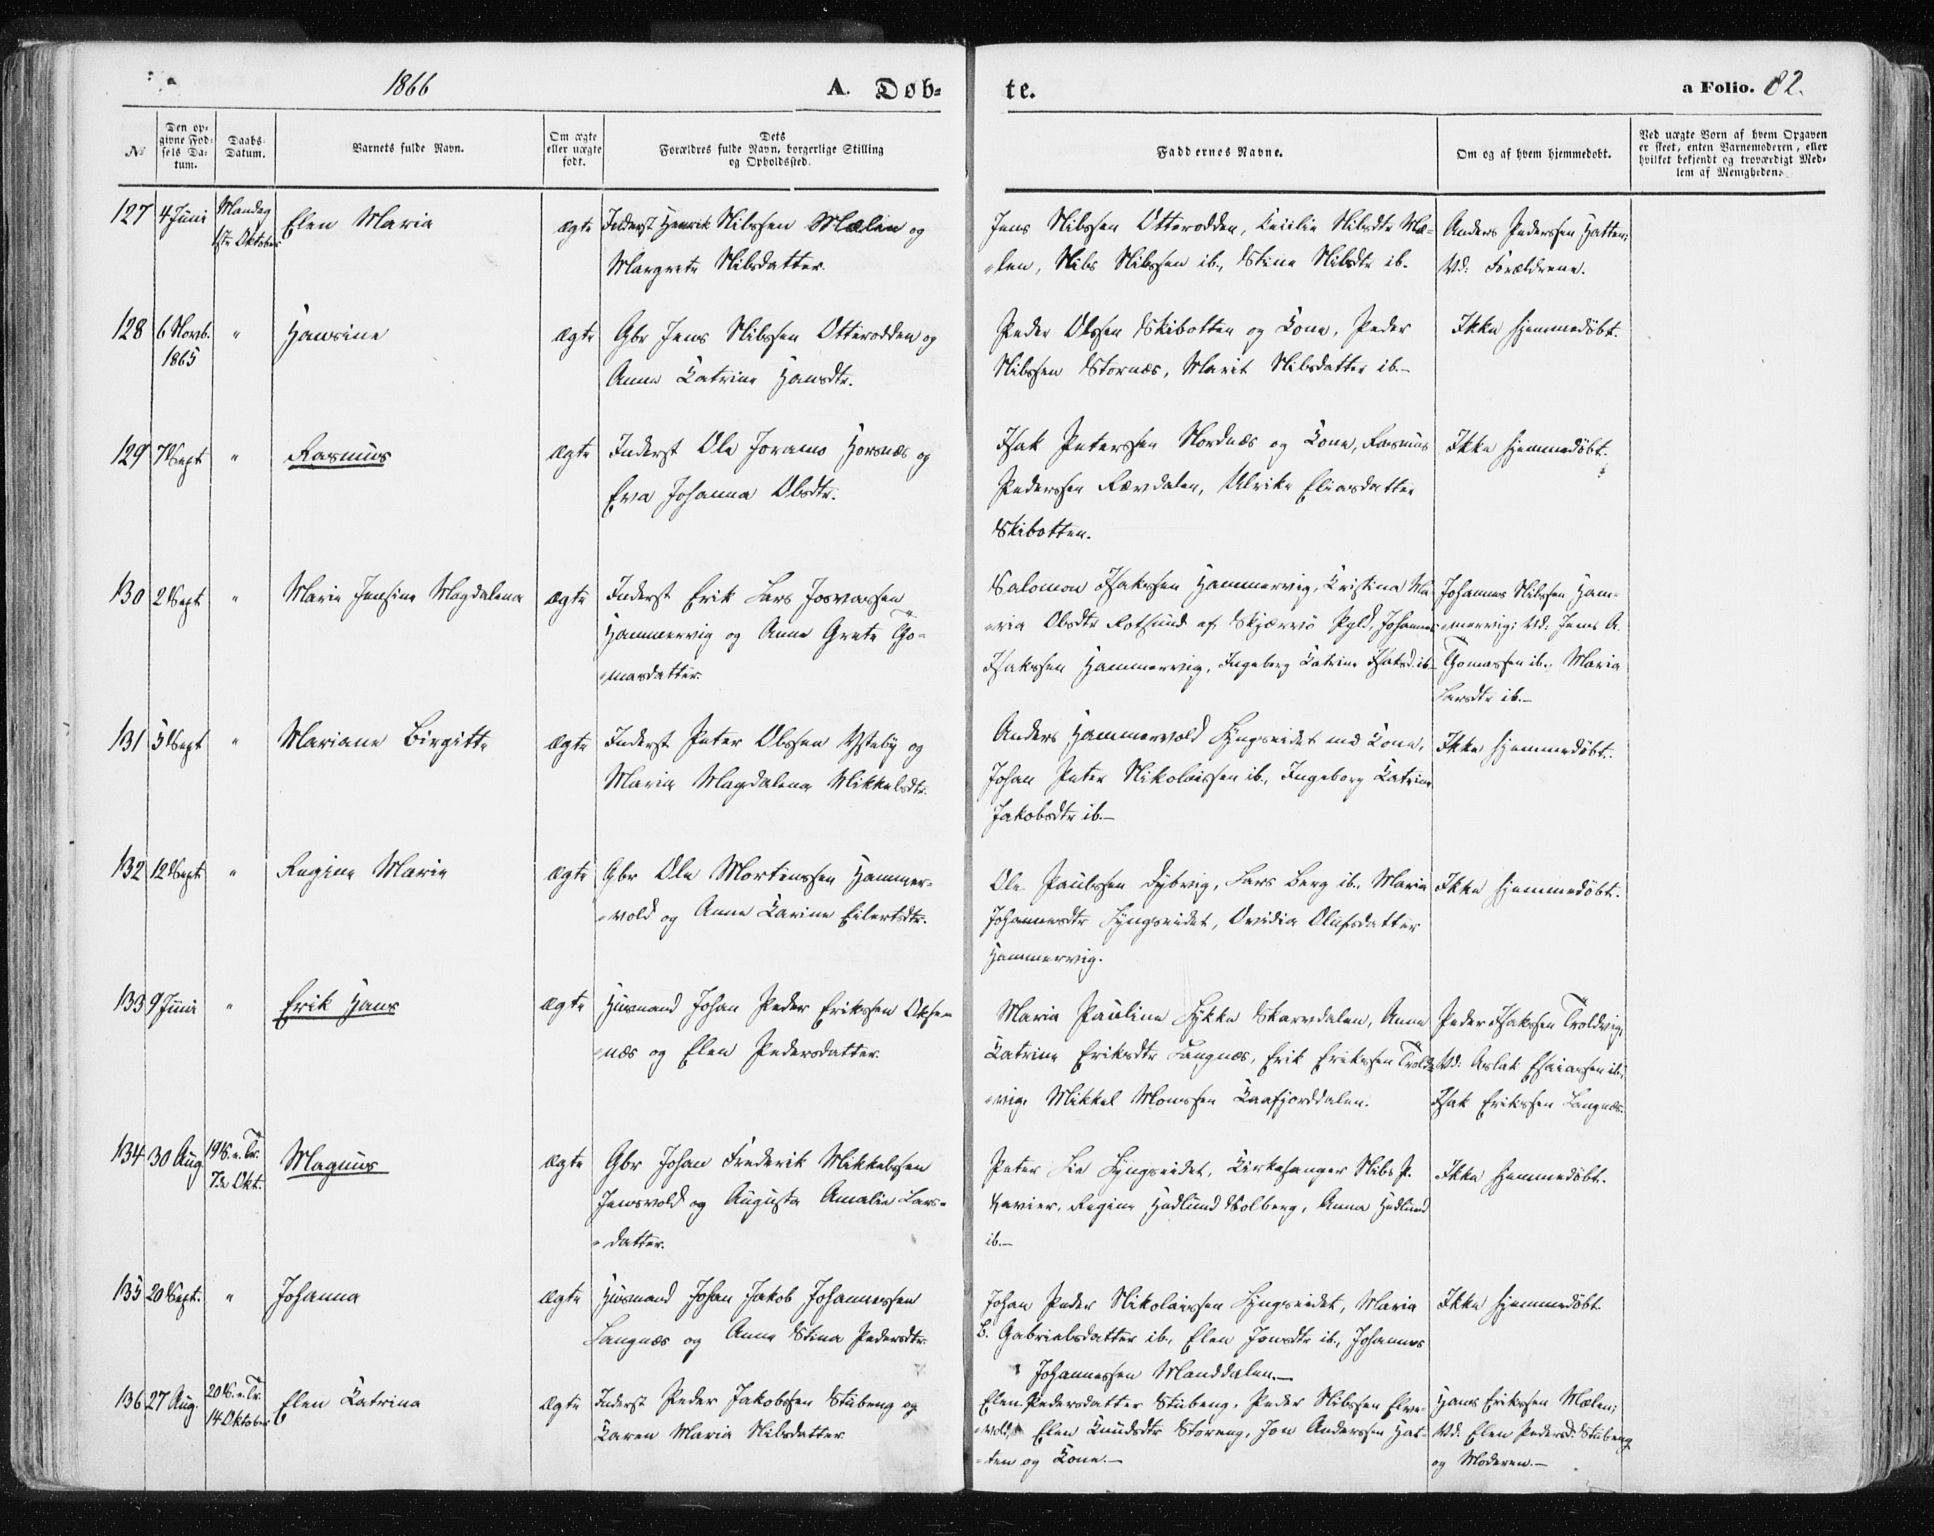 1866
A. Døb=
te.
a Folio. 82.
№
Den op=
givne Fød=
sels Da=
tum.
Daabs=
Datum.
Barnets fulde Navn.
Om ægte
eller uægte
født.
Dets
Forældres fulde Navn, borgerlige Stilling
og Opholdssted.
Faddernes Navne.
Om og af hvem hjemmedøbt.
Ved uægte Børn af hvem Opgaven
er skeet, enten Barnemoderen, eller
hvilket bekjendt og troværdigt Med=
lem af Menigheden.
127 4 Juni Mandag
1ste Oktober
Elen Maria
ægte
Inderst Henrik Nilssen Mælen og
Margrete Nilsdatter.
Jens Nilssen Otterodden, Cecilie Nilsdtr Mæ-
len, Nils Nilssen ib., Stine Nilsdtr ib.
Anders Pederssen Hatten;
Vd: Forældrene.
128 6 Novb.
1865
"
Hansine
ægte
Gbr Jens Nilssen Otterodden og
Anne Katrine Hansdtr.
Peder Olssen Skibotten og Kone, Peder
Nilssen Stornæs, Marit Nilsdatter ib.—
Ikke hjemmedøbt.
129 7 Sept " Rasmus
ægte
Inderst Ole Joramo Horsnæs og
Eva Johanna Olsdtr.
Isak Peterssen Nordnæs og Kone, Rasmus
Pederssen Rævdalen, Ulrike Eliasdatter
Skibotten.
Ikke hjemmedøbt.
130 2 Sept " Marie Jensine Magdalena
ægte
Inderst Erik Lars Josvassen
Hammervig og Anne Grete To-
masdatter.
Salomon Isakssen Hammervig, Kristina Ma-
ria Olsdtr Rotsund af Skjærvø Pgld, Johannes
Isakssen Hammervig, Ingeborg Katrine Isaksd. ib—
Johannes Nilssen Ham-
mervig; Vd: Jens A.
Tomassen ib., Maria
Larsdtr ib.—
131 5 Sept " Mariane Birgitte
ægte
Inderst Peter Olssen Ysteby og
Maria Magdalena Mikkelsdtr.
Anders Hammervold Lyngseidet med Kone,
Johan Peter Nikolaissen ib., Ingeborg Katrine
Jakobsdtr ib.—
Ikke hjemmedøbt.
132 12 Sept " Regine Marie
ægte
Gbr Ole Mortenssen Hammer-
vold og Anne Karine Eilertsdtr.
Ole Paulssen Dybvig, Lars Berg ib., Maria
Johannesdtr Lyngseidet, Ovidia Olufsdatter
Hammervig.
Ikke hjemmedøbt.
133 9 Juni " Erik Hans
ægte
Husmand Johan Peder Erikssen Okse-
næs og Elen Pedersdatter.
Maria Pauline Lykke Skarvdalen, Anne
Katrine Eriksdtr Langnæs, Erik Erikssen Trold-
vig, Mikkel Monssen Kaafjorddalen.
Peder Isakssen Troldvig;
Vd: Aslak Esaiassen ib.,
Isak Erikssen Langnæs.
134 30 Aug. 19 S. e. Tr.
7de Okt.
Magnus
ægte
Gbr Johan Frederik Mikkelssen
Jensvold og Augusta Amalie Lars-
datter.
Peter Lie Lyngseidet, Kirkesanger Nils P.
Xavier, Regine Hedlund Solberg, Anna Hedlund
ib.—
Ikke hjemmedøbt.
135 20 Sept. " Johanna
ægte
Husmand Johan Jakob Johannessen
Langnæs og Anne Stina Pedersdtr.
Johan Peder Nikolaissen Lyngseidet, Maria
B. Gabrielsdatter ib., Elen Jonsdtr ib., Johannes
Johannessen Manddalen.—
Ikke hjemmedøbt
136 27 Aug. 20 S. e. Tr.
14 Oktober
Elen Katrina
ægte
Inderst Peder Jakobssen Stubeng og
Karen Maria Nilsdatter
Elen Pedersdatter Stubeng, Peder Nilssen Elve-
vold, Elen Knudsdtr Storeng, Jon Anderssen Hat-
ten og Kone.—
Hans Erikssen Mælen;
Vd: Elen Pedersd. Stubeng
og Moderen.—